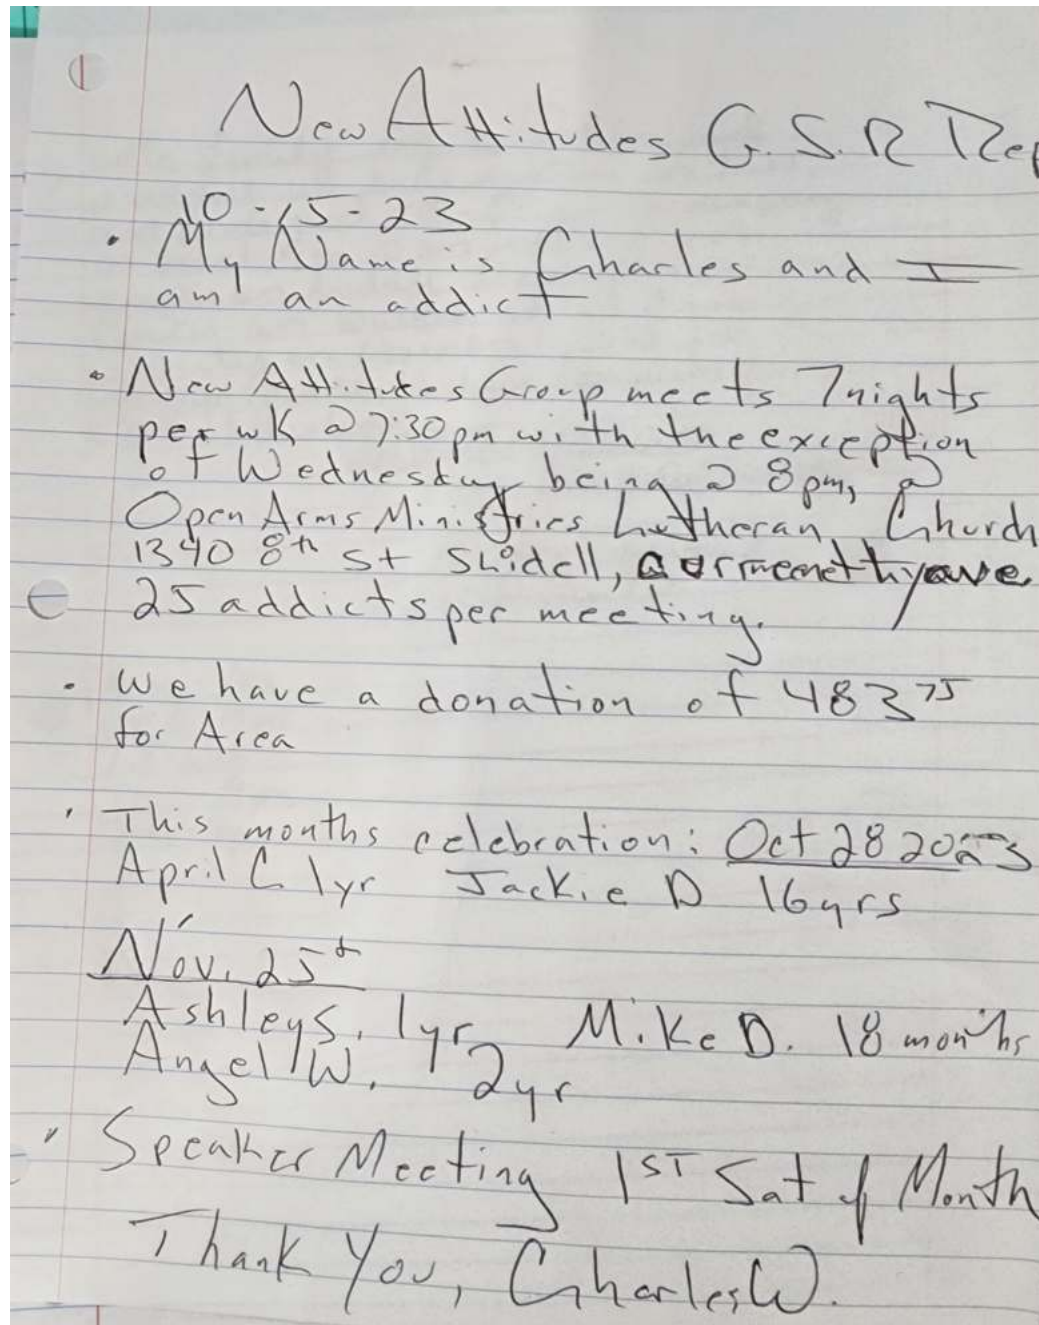 New Attitudes G.S.R Rep
10-15-23
• My Name is Charles and I
am an addict
• New Attitutes Group meets 7nights
per wk @ 7:30pm with the exception
of Wednesday being @ 8pm, @
Open Arms Ministries Lutheran Church
1340 8th St Slidell,
25 addicts per meeting.
• We have a donation of 483 75
for Area
• This months celebration: Oct 28 2023
April C 1yr Jackie D 16yrs
Nov. 25th
Ashley S. 1yr Mike D. 18 months
Angel W. 2yr
• Speaker Meeting 1ST Sat of Month
Thank You, Charles W.